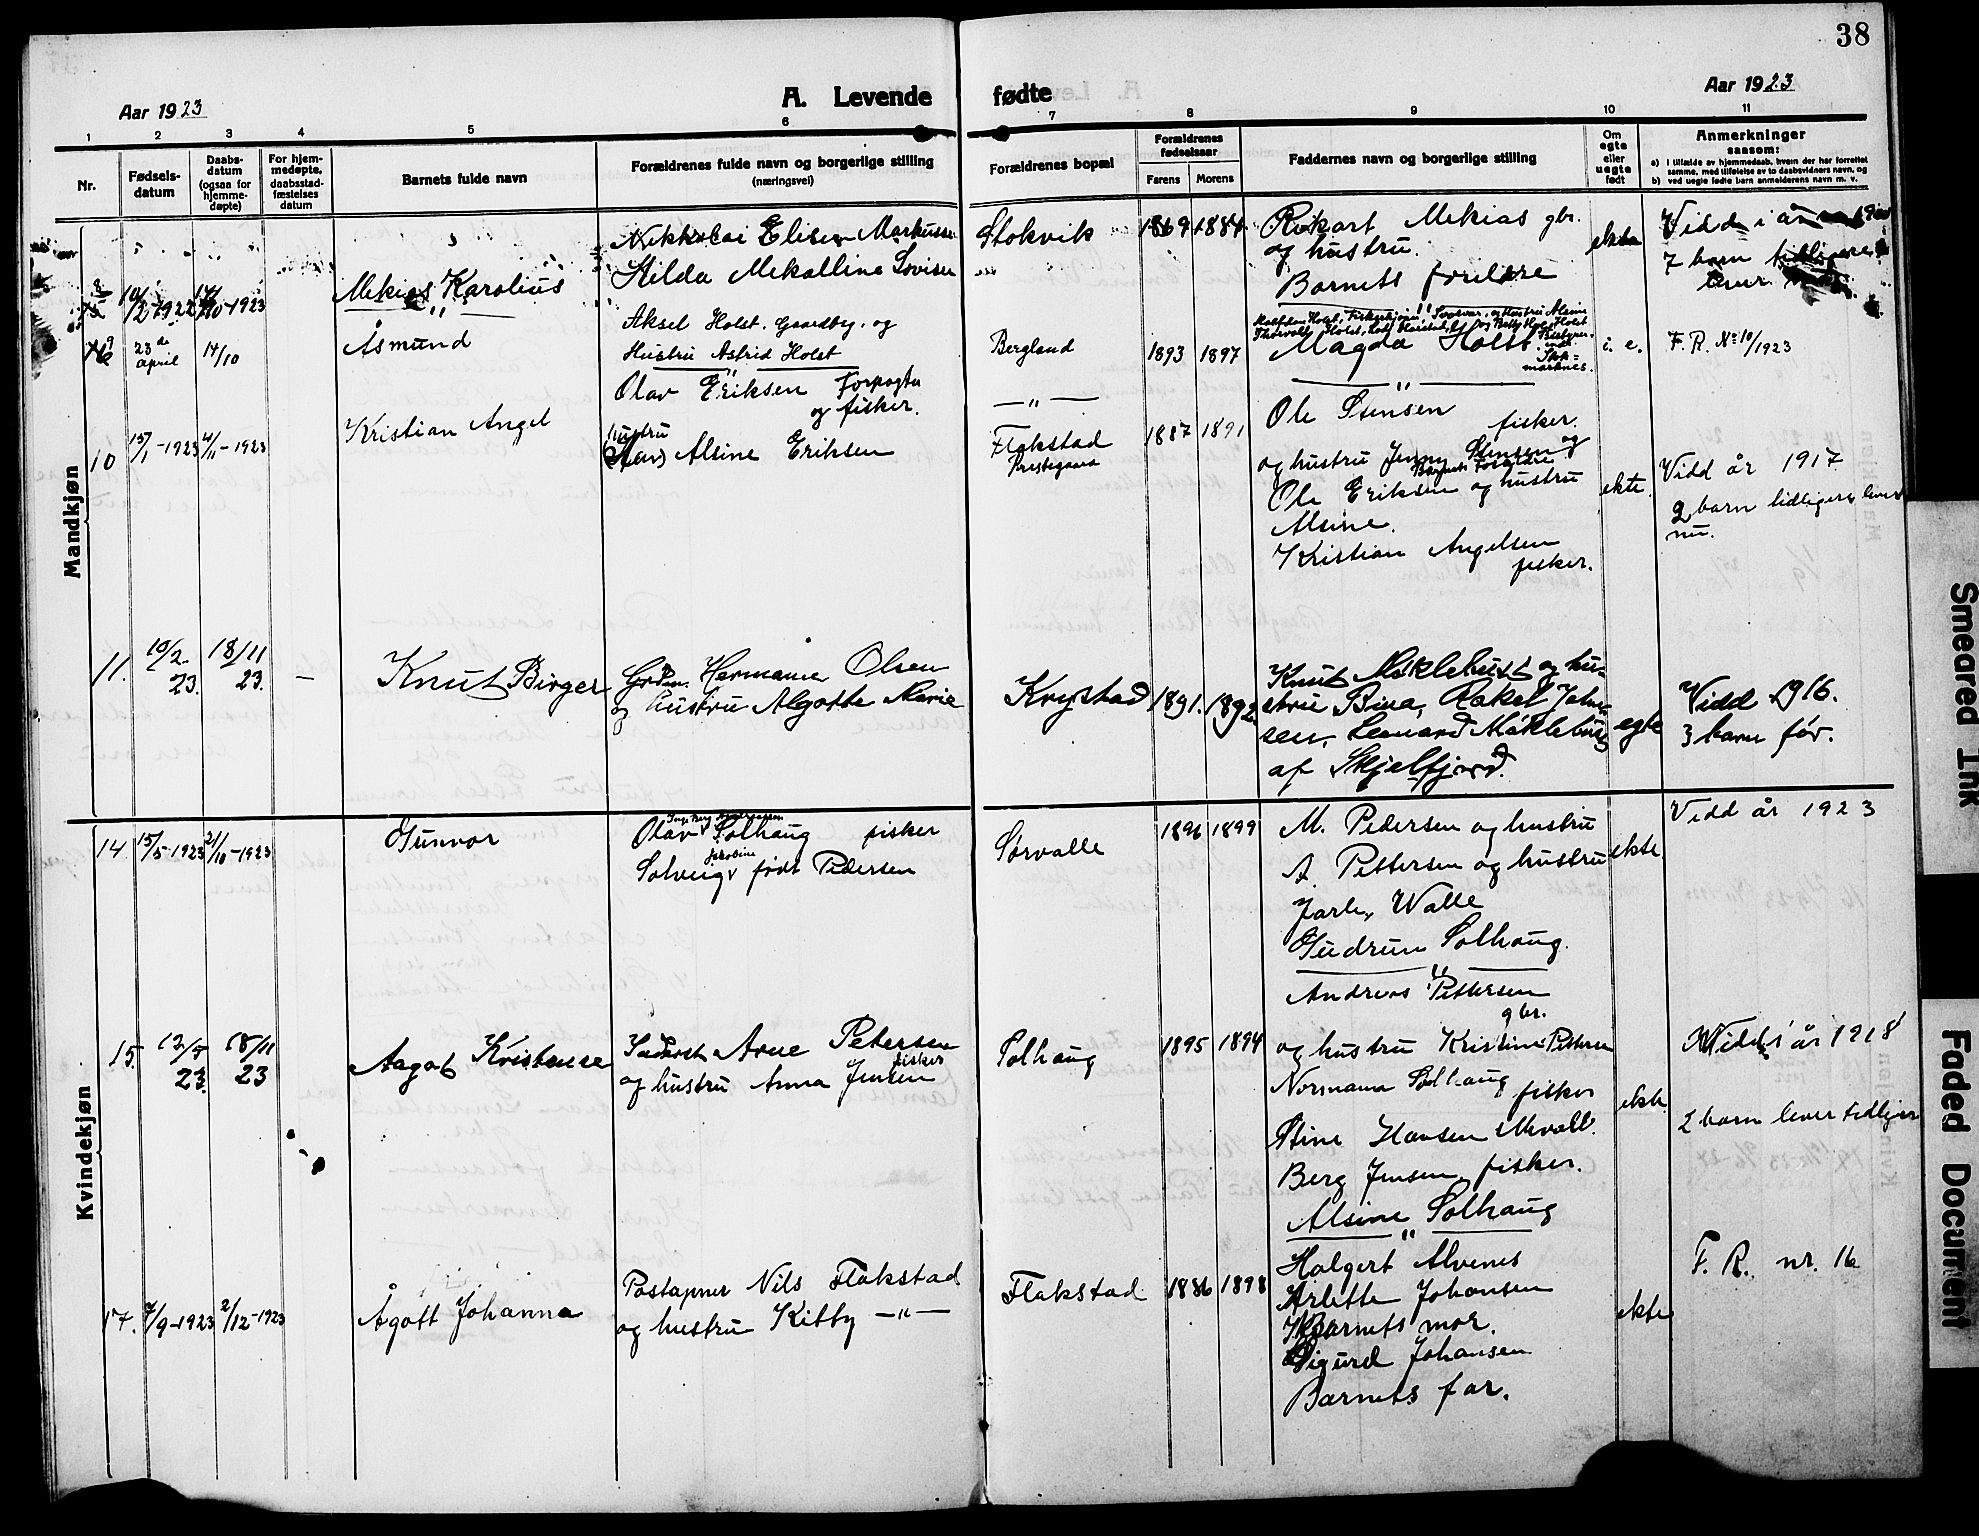 38
Aar 1923
A. Levende
fødte
Aar 1923
1 2 3 4 5 6 7 8 9 10 11
Nr.
Fødsels-
datum
Daabs-
datum
(ogsaa for
hjemme-
døpte)
For hjem-
medøpte,
daabsstad-
fæstelses
datum
Barnets fulde navn
Forældrenes fulde navn og borgerlige stilling
(næringsvei)
Forældrenes bopæl
Forældrenes
fødselsaar
Farens Morens
Faddernes navn og borgerlige stilling
Om
egte
eller
uegte
født
Anmerkninger
saasom:
a) i tilfælde av hjemmedaab, hvem der har forrettet
samme, med tilføielse av to daabsvidners navn, og
b) ved uegte fødte barn anmelderens navn m. v.
Mandkjøn
10/2-1922
10-1923
Mekias Karolius
Nikkolai Eliser Markussen
Hilda Mekalline Lovise
Stokvik
1869 1884
Rikart Mekias gbr.
og hustru.
Barnets forældre
ekte
Vidd i år
7 barn tidligere
lever
9
23de
april
14/10
Åsmund
Aksel Holst. Gaardbr. og
Hustru Astrid Holst
Bergland
1893 1897
Magda Holst
Stok=
marknes.
i. e.
F. R. No 10/1923
10
15/1-1923
4/11-1923
Kristian Angel
Olav Eriksen Forpagter
og fisker.
hustru
Alsine Eriksen
— " —
Flakstad
Prestegaard
1887 1891
Ole Stensen
fisker.
og hustru Jenny Stensen og
Barnets Forældre
Ole Eriksen og hustru
Alsine.
Kristian Angelsen
fisker.
ekte.
Vidd år 1917
2 barn tidligere lever
nu.
11.
10/2
23.
18/11
23.
—
Knut Birger
Hermann Olsen
og hustru Algotte Marie
Krystad
1891. 1892.
Knut Møklebust og hu-
stru Bina, Rakel Johan-
sen, Leonard Møklebust
af Skjelfjord.
egte
Vidd 1916.
3 barn før.
Kvindekjøn
14
15/5-1923
21/10-1923
Gunvor
Olav Solhaug fisker
Jakobine
Solveig født Pedersen
Sørvalle
1896 1899
M. Pedersen og hustru
A. Pettersen og hustru
Jarle Walle
Gudrun Solhaug.
ekte.
Vidd år 1923
15.
12/5
23.
18/11
23
Aagot Kristense
Arne Petersen
fisker
og hustru Anna Jensen
Solhaug
1895 1894
Andreas Pettersen
gbr.
og hustru Kristine Pettersen
Normann Solhaug fisker
Stine Hansen
Berg Jensen fisker.
Alsine Solhaug
ekte.
Vidd i år 1918
2 barn lever tidligere
17.
7/9-1923
2/12-1923
Ågott Johanna
Postapner Nils Flakstad
og hustru Kitty — " —
Flakstad
1886 1898
Holgert Alvenes
Arlette Johansen
Barnets mor.
Sigurd Johansen
Barnets far.
ekte
F. R. nr. 16
Smeared Ink
Faded Document